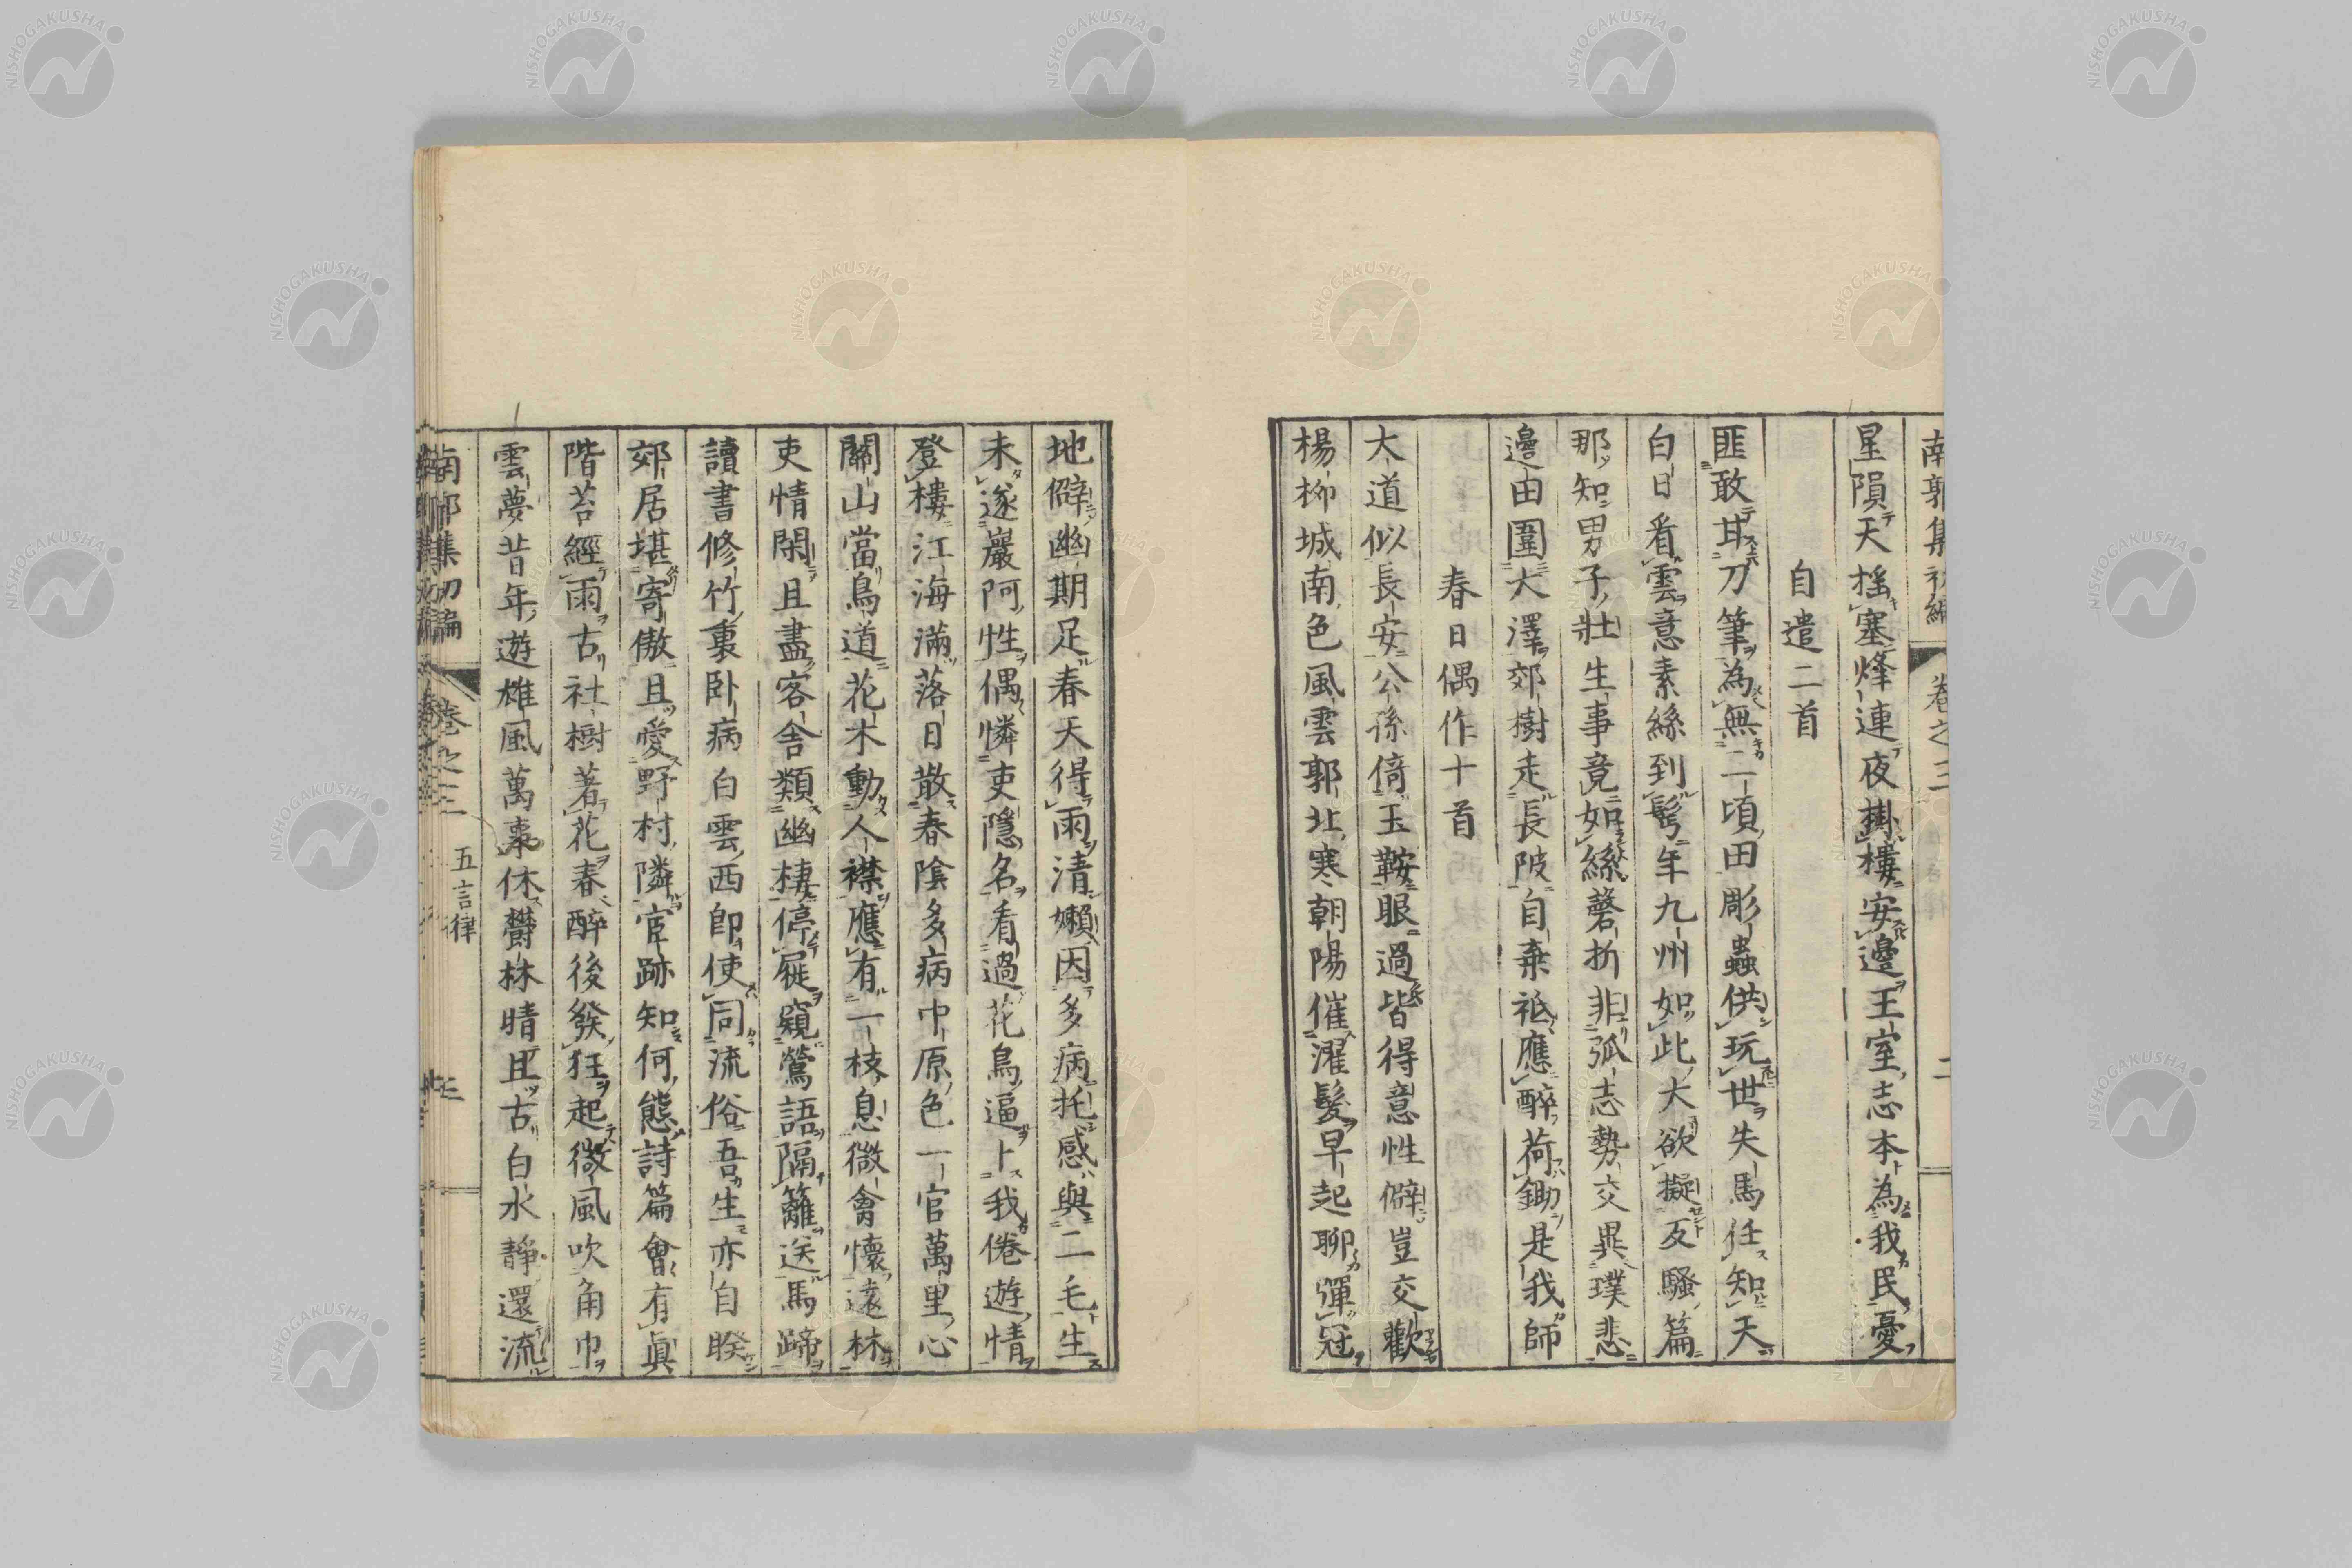 南郭集初編 卷之三 二
星隕天搖塞烽連夜掛樓安邊王室志本為我民憂
自遣二首
匪敢耳刀筆為無二頃田彫蟲供玩世失馬任知天
白日看雲意素絲到髩年九州如此大欲擬反騷篇
那知男子壯生事竟如絲磬折非孤志勢交異璞悲
邊由圍大澤郊樹走長陂自棄祗應醉荷鋤是我師
春日偶作十首
大道似長安公孫倚玉鞍眼過皆得意性僻豈交歡
楊柳城南色風雲郭北寒朝陽催濯髮早起聊彈冠
地僻幽期足春天得雨清嬾因多病托感與二毛生
未遂巖阿性偶憐吏隱名看過花鳥逼卜我倦遊情
登樓江海滿落日散春陰多病中原色一官萬里心
關山當鳥道花木動人襟應有一枝息微禽懷遠林
吏情閑且盡客舍類幽棲停屣窺鶯語隔籬送馬蹄
讀書修竹裏臥病白雲西即使同流俗吾生亦自睽
郊居堪寄傲且愛野村隣宦跡知何態詩篇會有眞
階苔經雨古社樹著花春醉後發狂起微風吹角巾
雲夢昔年遊雄風萬事休欝林晴且古白水靜還流
南郭集初編 卷之三 五言律